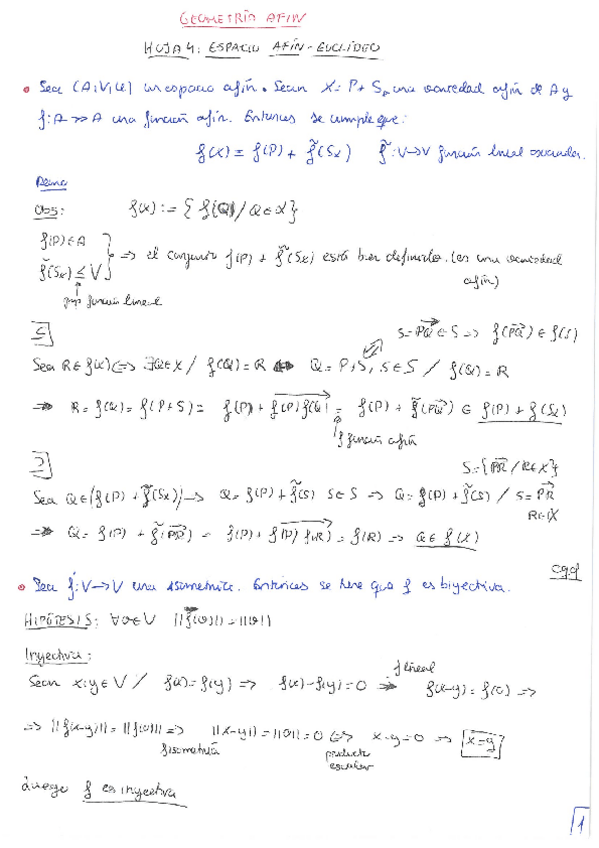 GEOMETRÍA AFÍN
HOJA 4: ESPACIO AFÍN-EUCLÍDEO
• Sea (A,V,φ) un espacio afín. Sean X = P + Sx una variedad afín de A y
f: A → A una función afín. Entonces se cumple que:
f(X) = f(P) + f̃(Sx) f̃: V→V función lineal asociada.
Demo
Obs: f(X) := { f(Q) / Q ∈ X }
f(P) ∈ A
f̃(Sx) ≤ V } ⇒ el conjunto f(P) + f̃(Sx) está bien definido. (es una variedad
afín)
función lineal
⊆] S = PQ⃗ ∈ S ⇒ f(PQ⃗) ∈ f(S)
Sea R ∈ f(X) ⟺ ∃Q ∈ X / f(Q) = R ⟺ Q = P + S, S ∈ S / f(Q) = R
⇒ R = f(Q) = f(P+S) = f(P) + f(P)f(Q)⃗ = f(P) + f̃(PQ⃗) ∈ f(P) + f(Sx)
f función afín
⊇] S = { PR⃗ / R ∈ X }
Sea Q ∈ (f(P) + f̃(Sx)) → Q = f(P) + f̃(S) S ∈ S ⇒ Q = f(P) + f̃(S) / S = PR⃗
R ∈ X
⇒ Q = f(P) + f̃(PR⃗) = f(P) + f(P)f(R)⃗ = f(R) ⇒ Q ∈ f(X)
cqd
• Sea f: V→V una isometría. Entonces se tiene que f es biyectiva.
HIPÓTESIS: ∀v ∈ V ||f(v)|| = ||v||
Inyectiva:
Sean x,y ∈ V / f(x) = f(y) ⇒ f(x) - f(y) = 0 ⇒ f(x-y) = f(0) ⇒
f lineal
⇒ ||f(x-y)|| = ||f(0)|| ⇒ ||x-y|| = ||0|| = 0 ⟺ x-y = 0 ⇒ x=y
f isometría producto
escalar
Luego f es inyectiva
1